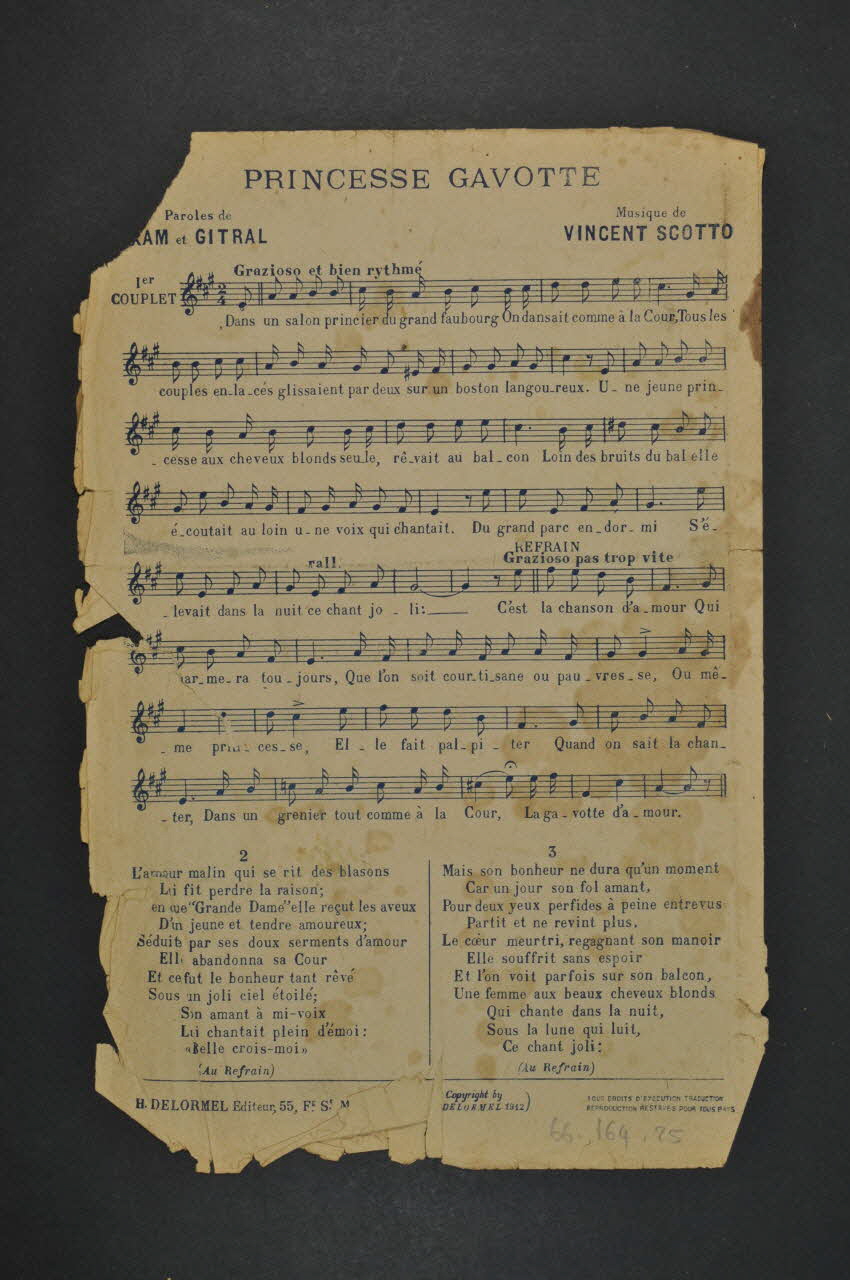 PRINCESSE GAVOTTE
Paroles de
et GITRAL
Musique de
VINCENT SCOTTO
Grazioso et bien rythmé
1er
COUPLET
Dans un salon princier du grand faubourg On dansait comme à la Cour, Tous les
couples en_la_cés glissaient par deux sur un boston langou_reux. U_ne jeune prin_
_cesse aux cheveux blonds seu_le, rê_vait au bal_con Loin des bruits du bal elle
é_coutait au loin u_ne voix qui chantait. Du grand parc en_dor_mi S'é_
rall.
REFRAIN
Grazioso pas trop vite
_levait dans la nuit ce chant jo_li: C'est la chanson d'a_mour Qui
_me_ra tou_jours, Que l'on soit cour_ti_sane ou pau_vres_se, Ou mê_
_me prin_ces_se, El_le fait pal_pi_ter Quand on sait la chan_
_ter, Dans un grenier tout comme à la Cour, La ga_votte d'a_mour.
2
L'amour malin qui se rit des blasons
Lui fit perdre la raison;
"Grande Dame" elle reçut les aveux
D'un jeune et tendre amoureux;
Séduite par ses doux serments d'amour
Elle abandonna sa Cour
Et ce fut le bonheur tant rêvé
Sous un joli ciel étoilé;
Son amant à mi-voix
Lui chantait plein d'émoi:
«Belle crois-moi»
(Au Refrain)
3
Mais son bonheur ne dura qu'un moment
Car un jour son fol amant,
Pour deux yeux perfides à peine entrevus
Partit et ne revint plus.
Le cœur meurtri, regagnant son manoir
Elle souffrit sans espoir
Et l'on voit parfois sur son balcon,
Une femme aux beaux cheveux blonds
Qui chante dans la nuit,
Sous la lune qui luit,
Ce chant joli:
(Au Refrain)
H. DELORMEL Editeur, 55, Fg St M
Copyright by
DELORMEL 1912)
TOUS DROITS D'EXECUTION TRADUCTION
REPRODUCTION RESERVES POUR TOUS PAYS
66.,164.25